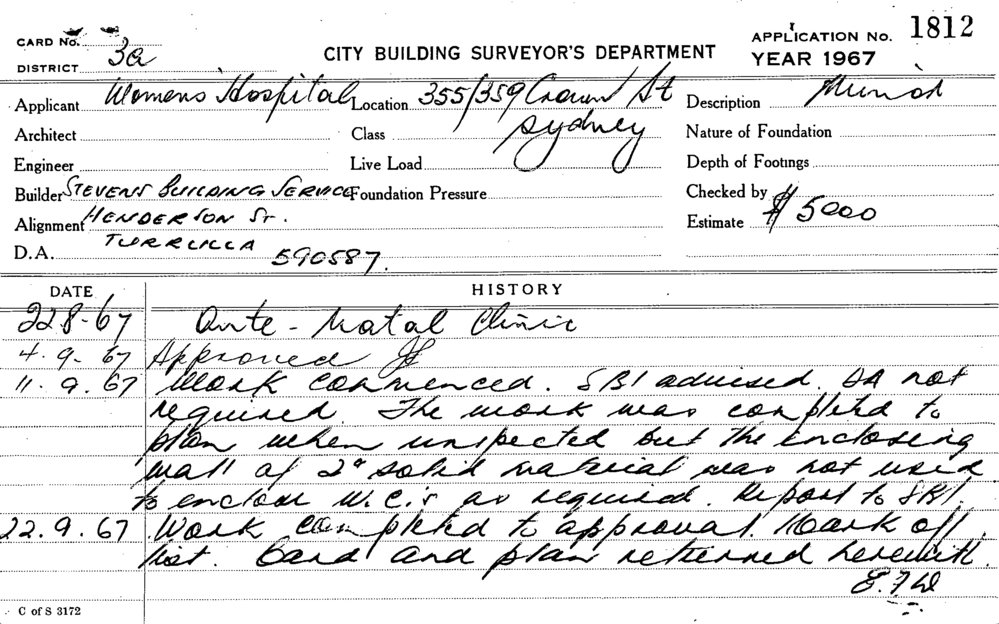 CARD No.
DISTRICT 3a
CITY BUILDING SURVEYOR'S DEPARTMENT
APPLICATION No. 1812
YEAR 1967
Applicant Womens Hospital Location 355/359 Crown St Description
Architect Class Sydney Nature of Foundation
Engineer Live Load Depth of Footings
Builder STEVENS BUILDING SERVICE Foundation Pressure Checked by
Alignment HENDERSON St. Estimate $ 5000
D.A. TURRELLA 590587.
DATE HISTORY
22.8-67 Ante-Natal Clinic
4.9.67 Approved
11.9.67 Work commenced. SBI advised. DA not
required. The work was completed to
plan when inspected but the enclosing
wall of 2" solid material was not used
to enclose W.C.'s as required. Report to SBI.
22.9.67 Work completed to approval. Mark off
list. Card and plan returned herewith.
C of S 3172